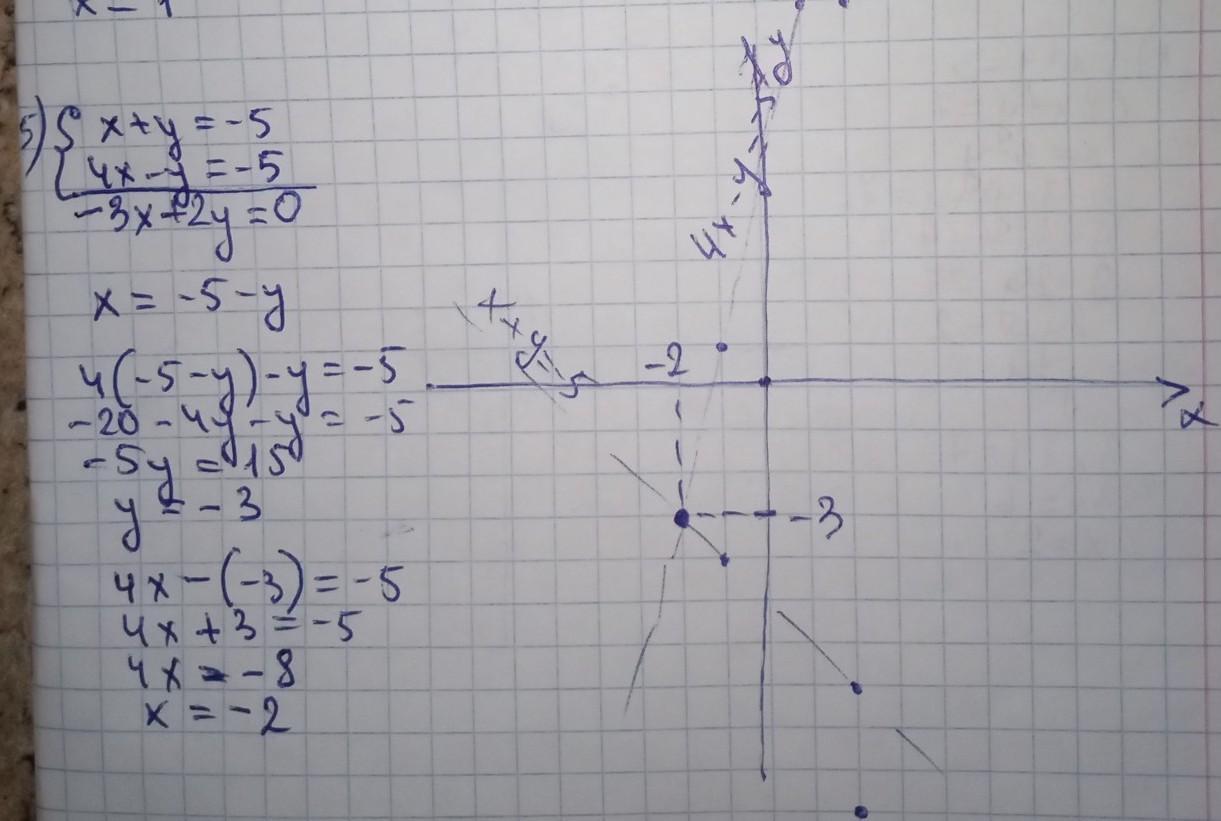 5) { x+y=-5
4x-y=-5
-3x+2y=0
x = -5-y
4(-5-y)-y=-5
-20-4y-y=-5
-5y=15
y=-3
4x-(-3)=-5
4x+3=-5
4x=-8
x=-2
y
4x-y=-5
-2
x
-3